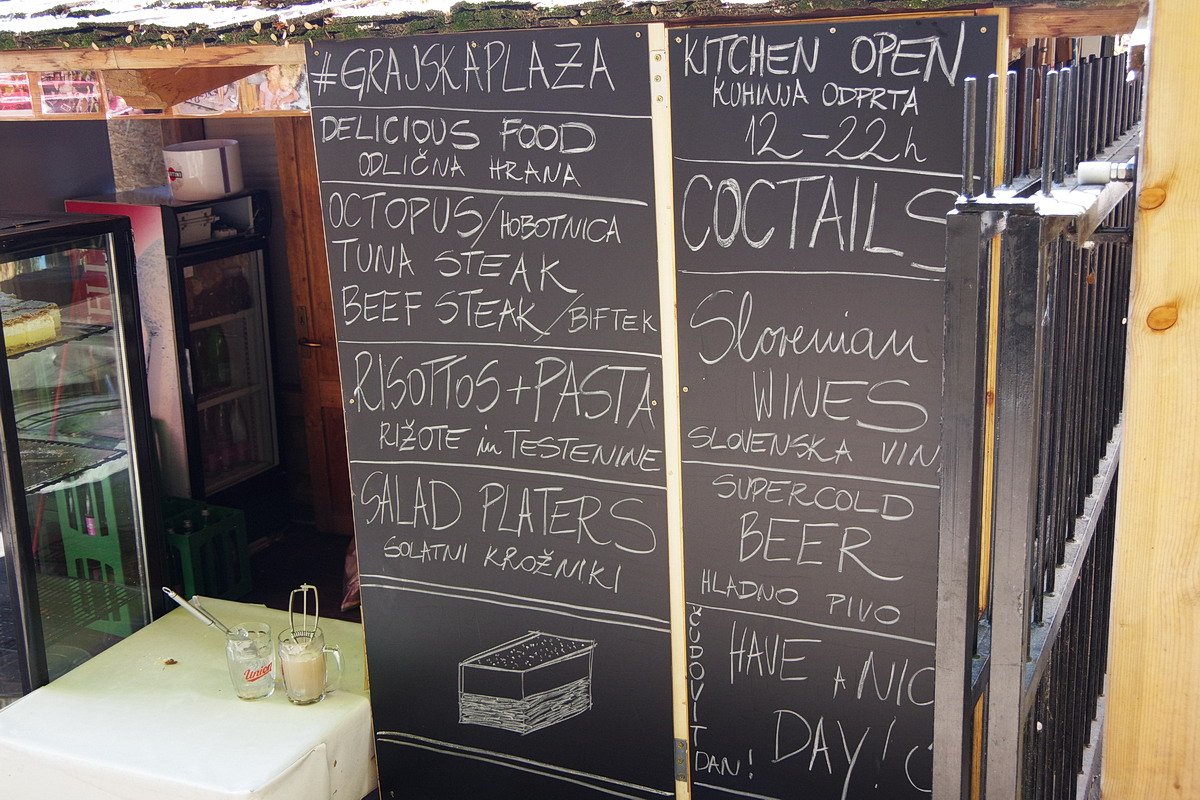 #GRAJSKAPLAZA
DELICIOUS FOOD
ODLIČNA HRANA
OCTOPUS/HOBOTNICA
TUNA STEAK
BEEF STEAK/BIFTEK
RISOTTOS+PASTA
RIŽOTE in TESTENINE
SALAD PLATERS
SOLATNI KROŽNIKI
KITCHEN OPEN
KUHINJA ODPRTA
12-22h
COCTAILS
Slovenian
WINES
SLOVENSKA VIN
SUPERCOLD
BEER
HLADNO PIVO
HAVE A NIC
DAY!
ČUDOVIT
DAN!
Union